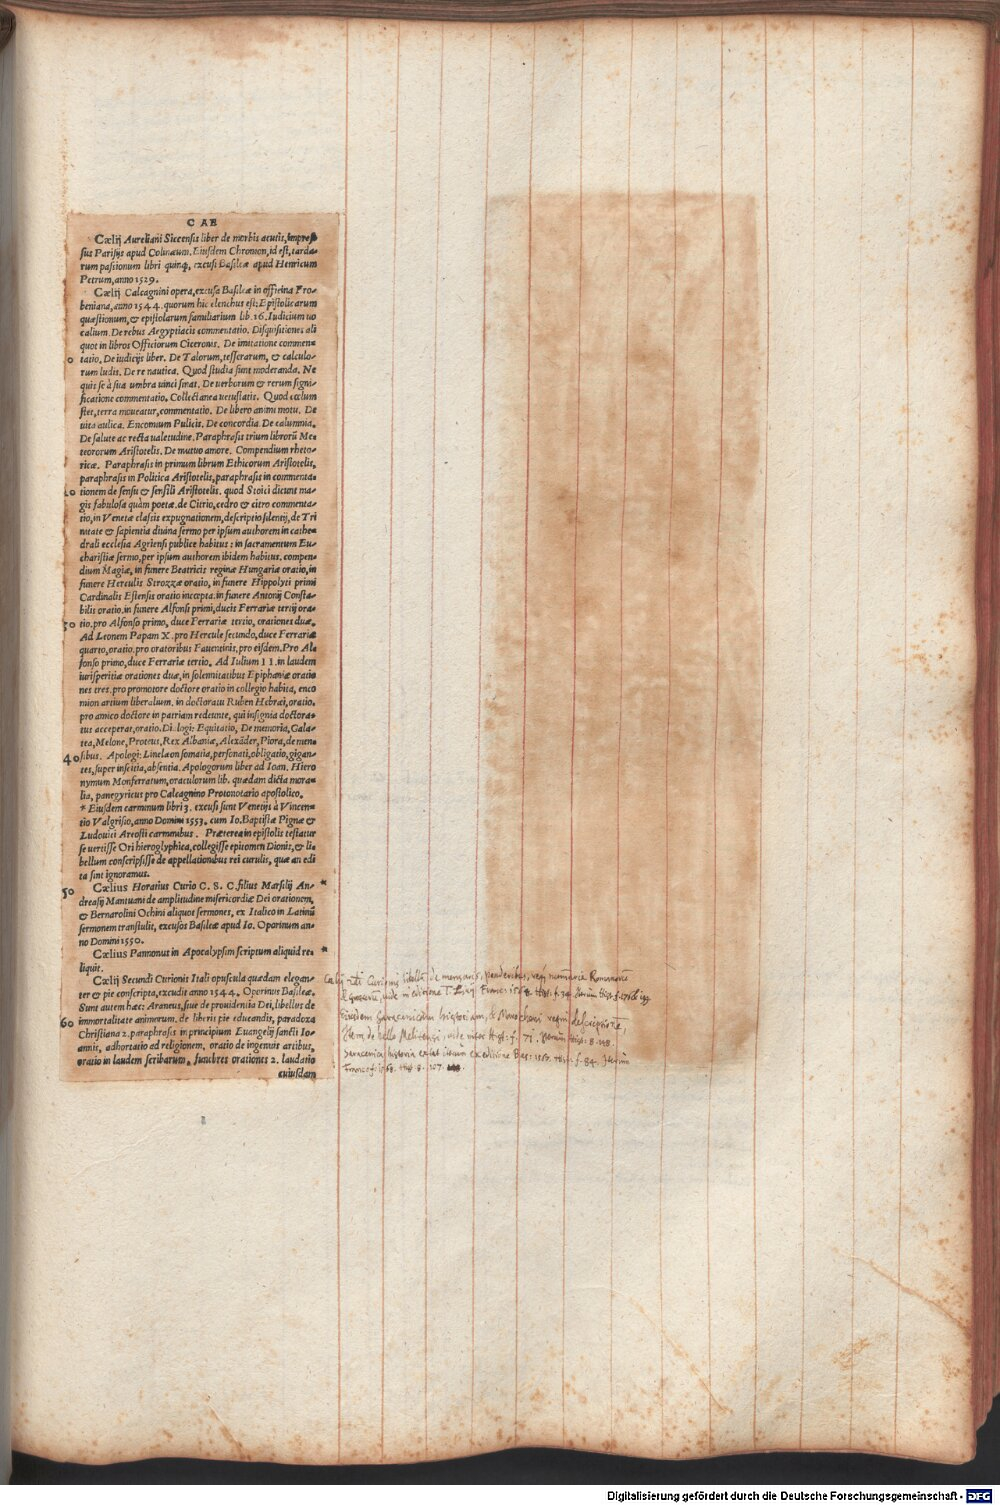 CAE
Cælij Aureliani Siccensis liber de morbis acutis, impres-
sus Parisijs apud Colinæum. Eiusdem Chronion, id est, tarda-
rum passionum libri quinq, excusi Basileæ apud Henricum
Petrum, anno 1529.
Cælij Calcagnini opera, excusa Basileæ in officina Fro-
beniana, anno 1544. quorum hic elenchus est: Epistolicarum
quæstionum, & epistolarum familiarium lib. 16. Iudicium uo
calium. De rebus Aegyptiacis commentatio. Disquisitiones ali
quot in libros Officiorum Ciceronis. De imitatione commen-
tatio. De iudicijs liber. De Talorum, tesserarum, & calculo-
rum ludis. De re nautica. Quod studia sint moderanda. Ne
quis se à sua umbra uinci sinat. De uerborum & rerum signi-
ficatione commentatio. Collectanea uetustatis. Quod cœlum
stet, terra moueatur, commentatio. De libero animi motu. De
uita aulica. Encomium Pulicis. De concordia. De calumnia.
De salute ac recta ualetudine. Paraphrasis trium librorũ Me-
teororum Aristotelis. De mutuo amore. Compendium rheto-
ricæ. Paraphrasis in primum librum Ethicorum Aristotelis,
paraphrasis in Politica Aristotelis, paraphrasis in commenta-
20 tionem de sensu & sensili Aristotelis. quod Stoici dicunt ma-
gis fabulosa quàm poetæ. de Citrio, cedro & citro commenta-
tio, in Venetæ classis expugnationem, descriptio silentij, de Tri
nitate & sapientia diuina sermo per ipsum authorem in cathe-
drali ecclesia Agriensi publice habitus: in sacramentum Eu-
charistiæ sermo, per ipsum authorem ibidem habitus. compen-
dium Magiæ, in funere Beatricis reginæ Hungariæ oratio, in
funere Herculis Strozzæ oratio, in funere Hippolyti primi
Cardinalis Estensis oratio incœpta. in funere Antonij Consta-
bilis oratio. in funere Alfonsi primi, ducis Ferrariæ tertij ora-
30 tio. pro Alfonso primo, duce Ferrariæ tertio, orationes duæ.
Ad Leonem Papam X. pro Hercule secundo, duce Ferrariæ
quarto, oratio. pro oratoribus Fauentinis, pro eisdem. Pro Al-
fonso primo, duce Ferrariæ tertio. Ad Iulium II. in laudem
iurisperitiæ orationes duæ, in solennitatibus Epiphaniæ oratio
nes tres. pro promotore doctore oratio in collegio habita, enco
mion artium liberalium. in doctoratu Ruben Hebræi, oratio.
pro amico doctore in patriam redeunte, qui insignia doctora-
tus acceperat, oratio. Dialogi: Equitatio, De memoria, Gala-
tea, Melone, Proteus, Rex Albaniæ, Alexãder, Piora, de men-
40 sibus. Apologi: Linelæon somatia, personati, obligatio, gigan-
tes, super inscitia, absentia. Apologorum liber ad Ioan. Hiero
nymum Monferratum, oraculorum lib. quædam dicta mora-
lia, panegyricus pro Calcagnino Protonotario apostolico.
* Eiusdem carminum libri 3. excusi sunt Venetijs à Vincen-
tio Valgrisio, anno Domini 1553. cum Io. Baptistæ Pignæ &
Ludouici Areosti carminibus. Præterea in epistolis testatur
se uertisse Ori hieroglyphica, collegisse epitomen Dionis, & li-
bellum conscripsisse de appellationibus rei curulis, quæ an edi
ta sint ignoramus.
50 Cælius Horatius Curio C. S. C. filius Marsilij An- *
dreasij Mantuani de amplitudine misericordiæ Dei orationem,
& Bernardini Ochini aliquot sermones, ex Italico in Latinũ
sermonem transtulit, excusos Basileæ apud Io. Oporinum an-
no Domini 1550.
Cælius Pannonus in Apocalypsim scriptum aliquid re- *
liquit.
Cælij Secundi Curionis Itali opuscula quædam elegan-
ter & pie conscripta, excudit anno 1544. Oporinus Basileæ.
Sunt autem hæc: Araneus, siue de prouidentia Dei, libellus de
60 immortalitate animorum. de liberis pie educandis, paradoxa
Christiana 2. paraphrases in principium Euangelij sancti Io-
annis, adhortatio ad religionem. oratio de ingenuis artibus,
oratio in laudem scribarum. funebres orationes 2. laudatio
cuiusdam
libellũ de mensuris, ponderibus, Romanorũ
Eiusdem Saracenicam historiam, & Marochani regni descriptionẽ,
Item de bello Melitensi
Saracenica historia
Digitalisierung gefördert durch die Deutsche Forschungsgemeinschaft - DFG